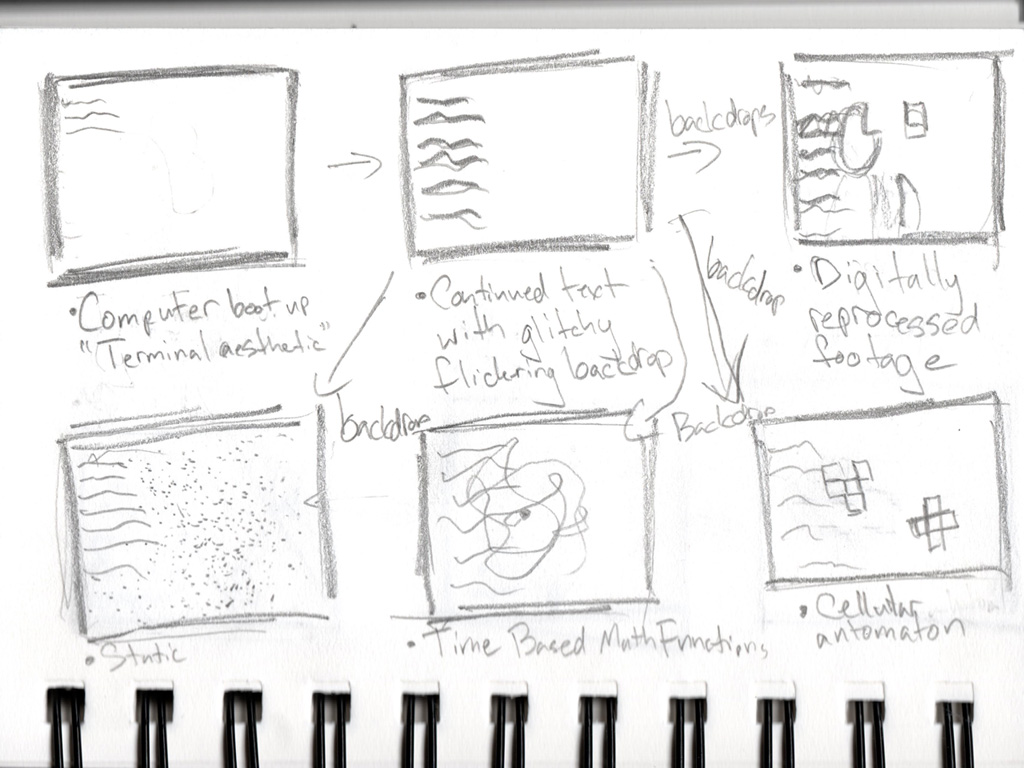 backdrops
• Computer boot up
"Terminal aesthetic"
• Continued text
with glitchy
flickering backdrop
backdrop
• Digitally
reprocessed
footage
backdrop
Backdrop
• Static
• Time Based Math Functions
• Cellular
automaton